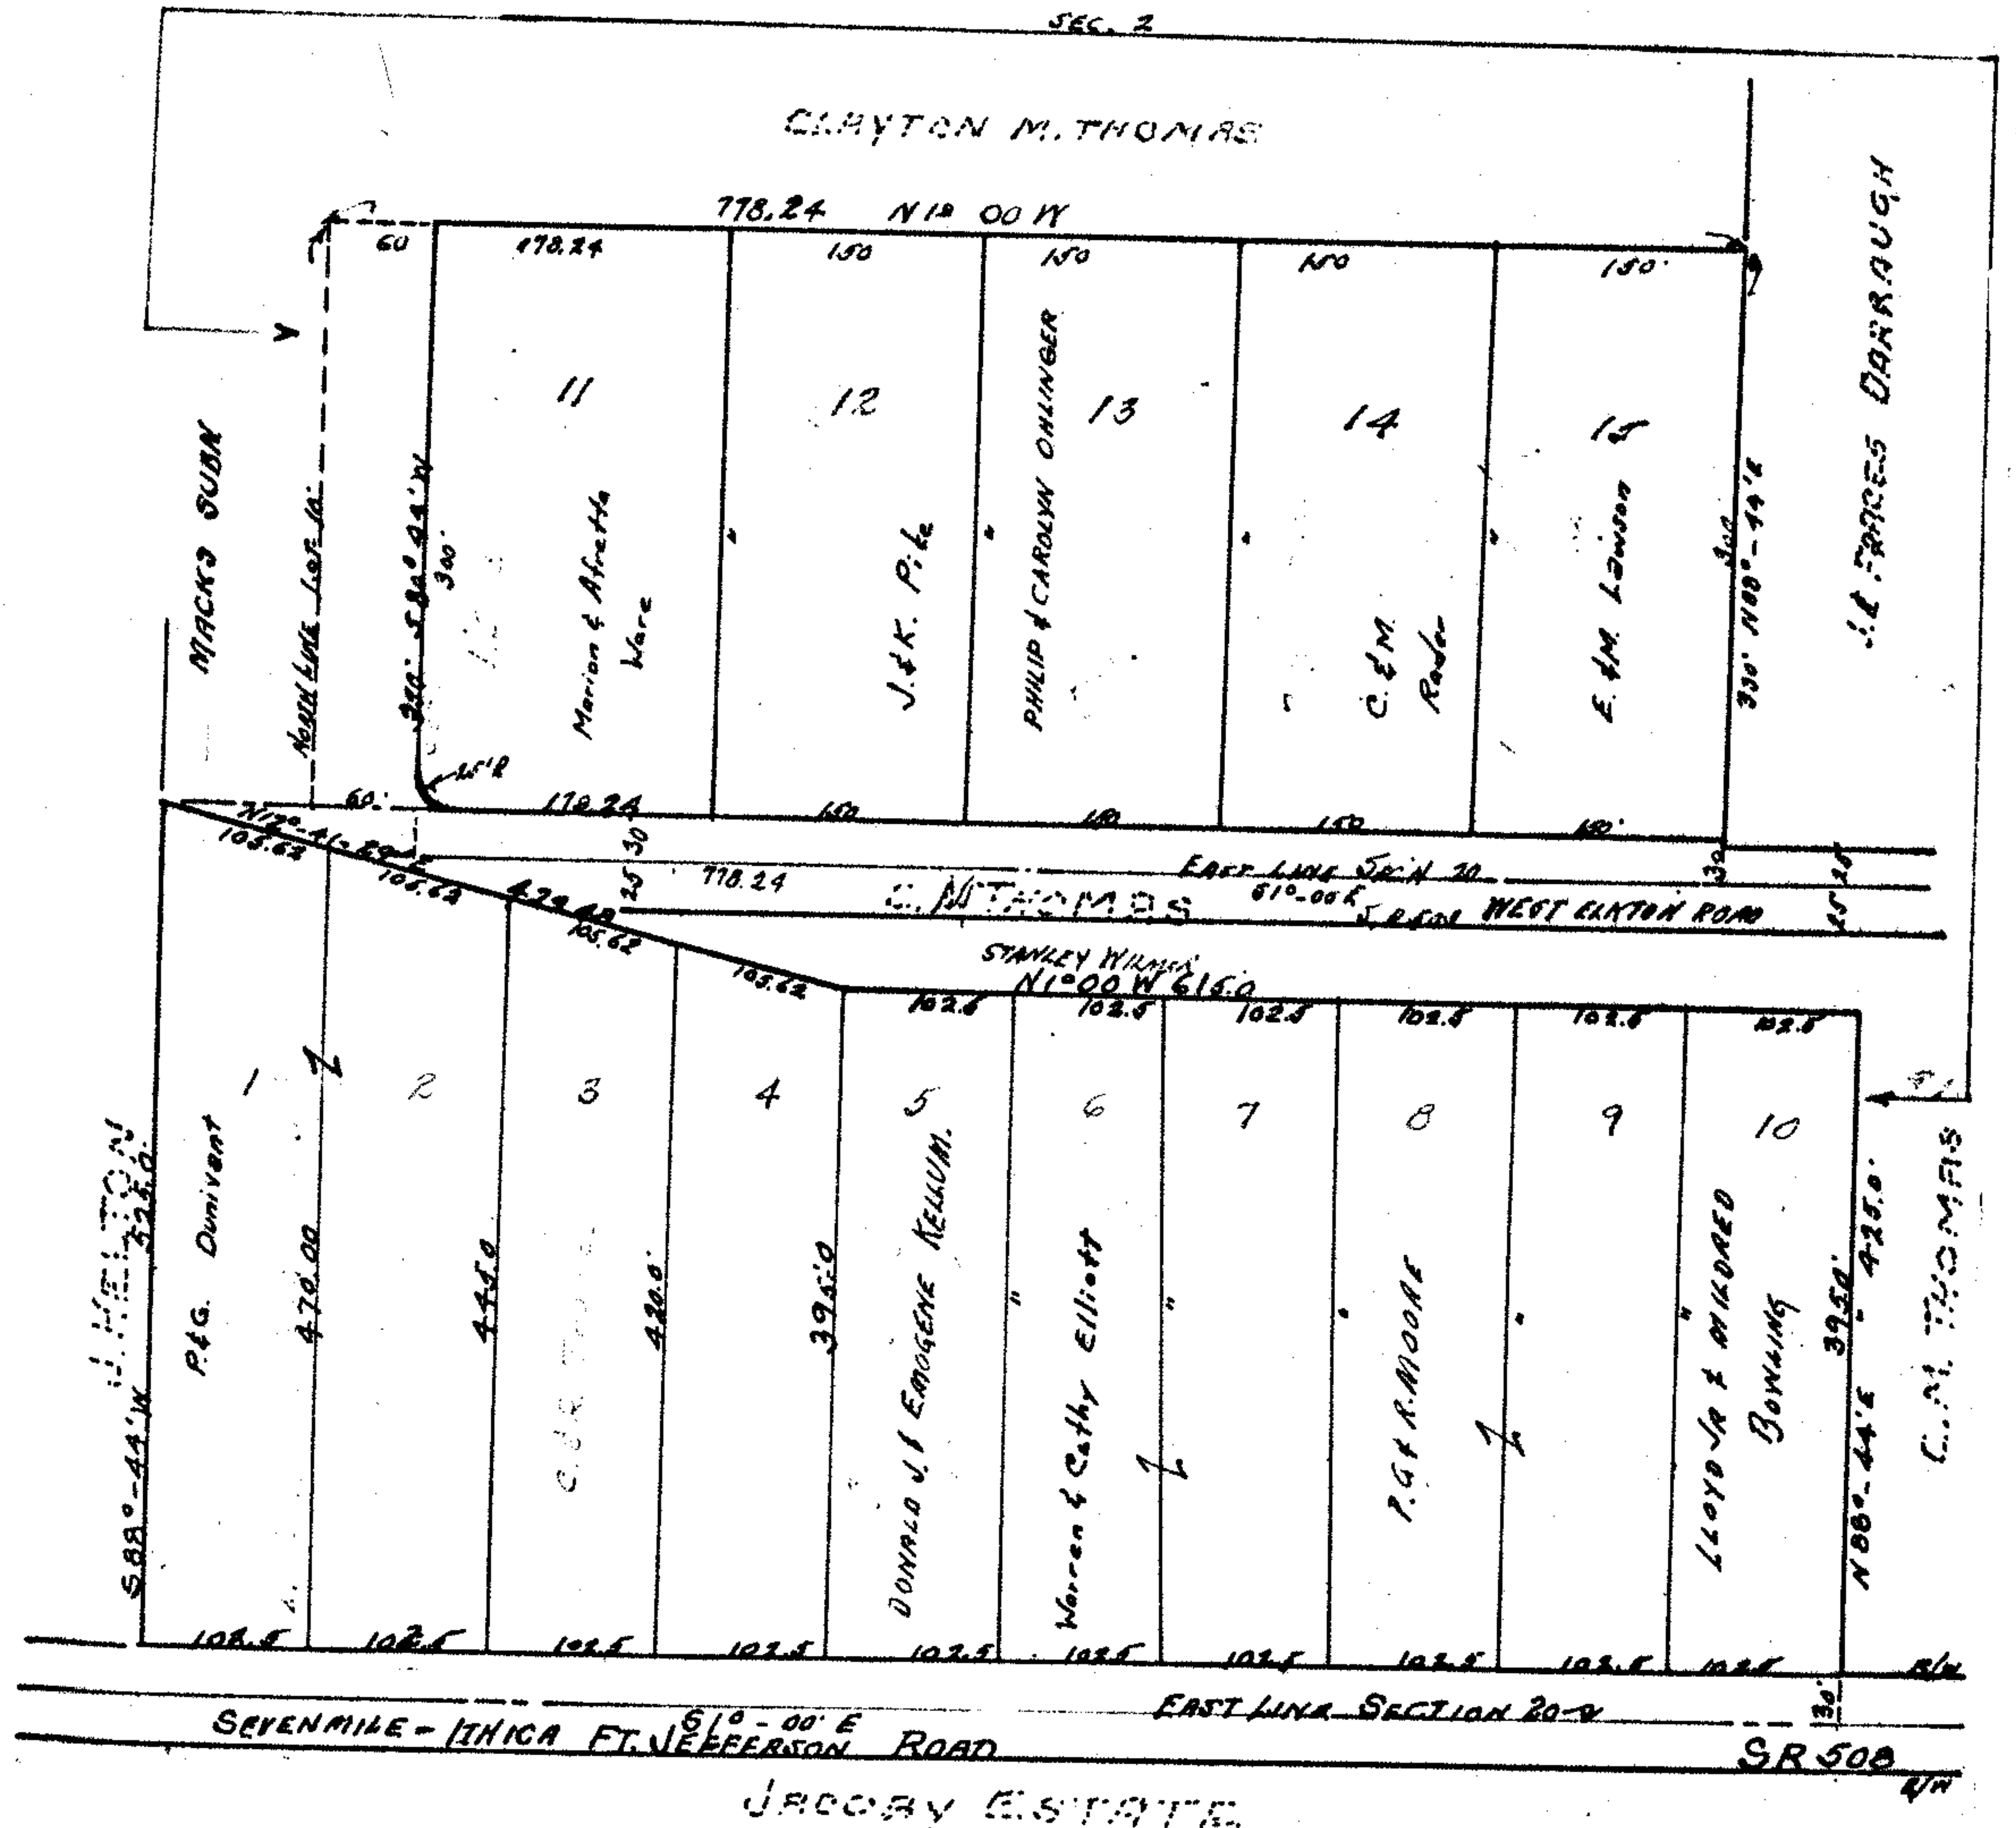 SEC. 2
CLAYTON M. THOMAS
778.24 N 1° 00 W
60
178.24
150
150
150
150'
MACKS SUBN
NORTH LINE LOT 10
300'
11
Marion & Afretta
Ware
12
J. & K. Pike
PHILIP & CAROLYN OHLINGER
13
14
C. & M.
Rader
15
E. & M. Lawson
300
330' N88°-44'E
60'
25'R
178.24
150
150
150
150'
105.62
105.62
105.62
105.62
30
25
778.24
EAST LINE
30
25
25
C. M. THOMAS
S1°-00 E
WEST ELKTON ROAD
STANLEY
N1°00 W 615.0
102.5
102.5
102.5
102.5
102.5
102.5
1
2
3
4
5
6
7
8
9
10
525.0'
S88°-44'W
P. & G. Dunivant
470.00
445.0
420.0'
395.0
DONALD J. & EMOGENE KELLUM.
Warren & Cathy Elliott
P. G. & R. MOORE
LLOYD JR & MILDRED
BOWLING
395.0'
N88°-44'E " 425.0'
C. M. THOMAS
102.5
102.5
102.5
102.5
102.5
102.5
102.5
102.5
102.5
102.5
R/W
30'
EAST LINE SECTION 20
S1°-00' E
SEVENMILE - ITHICA FT. JEFFERSON ROAD
SR 508
R/W
JACOBY ESTATE